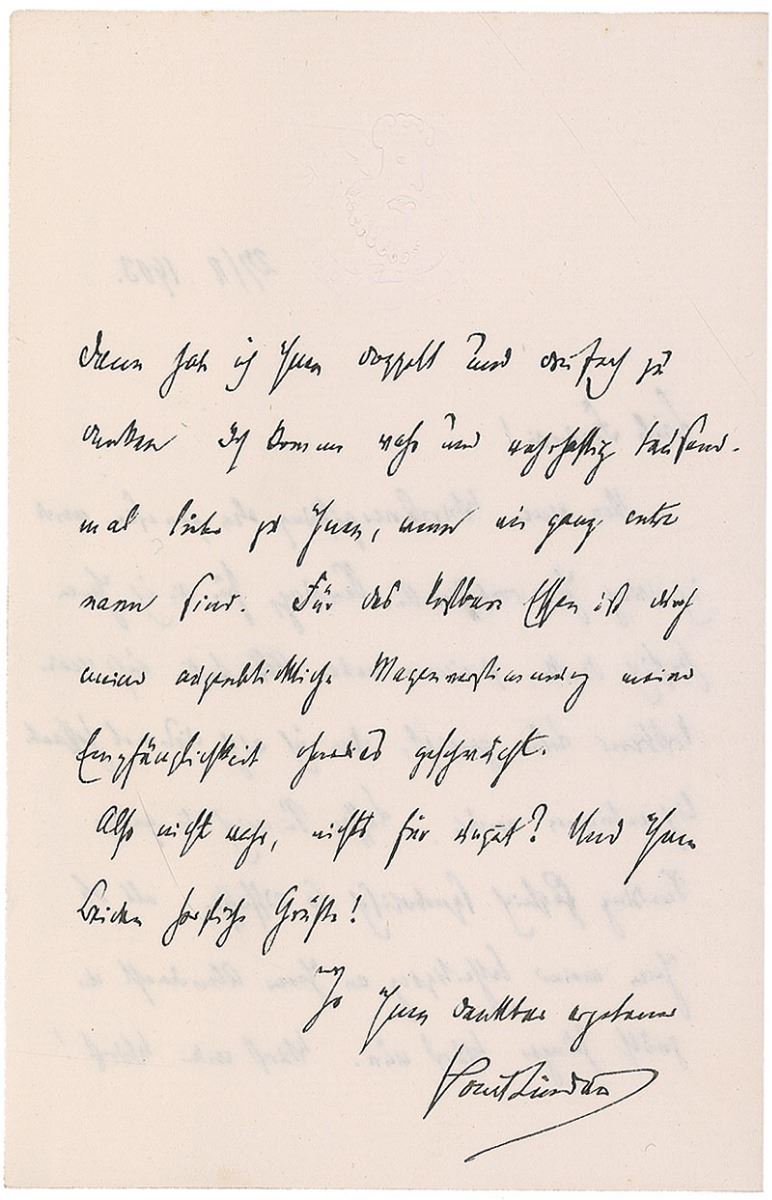 denn hab ich Ihnen doppelt und dreifach zu
danken. Ich komme wahr und wahrhaftig tausend-
mal lieber zu Ihnen, wenn wir ganz entre
nous sind. Für das kostbare Essen ist durch
meine augenblickliche Magenverstimmung meine
Empfänglichkeit ohnedies geschwächt.
Also nicht wahr, nichts für ungut? Und Ihnen
Beiden herzliche Grüße!
Ihnen dankbar ergebener
Paul Lindau